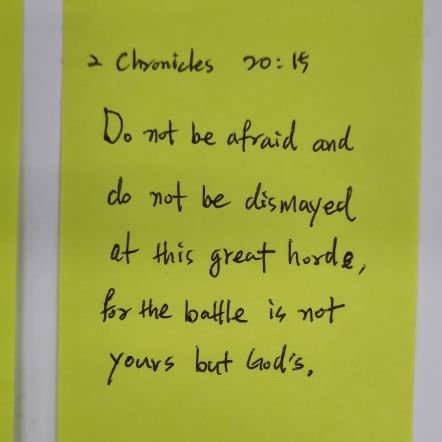 2 Chronicles 20:15
Do not be afraid and
do not be dismayed
at this great horde,
for the battle is not
yours but God's.